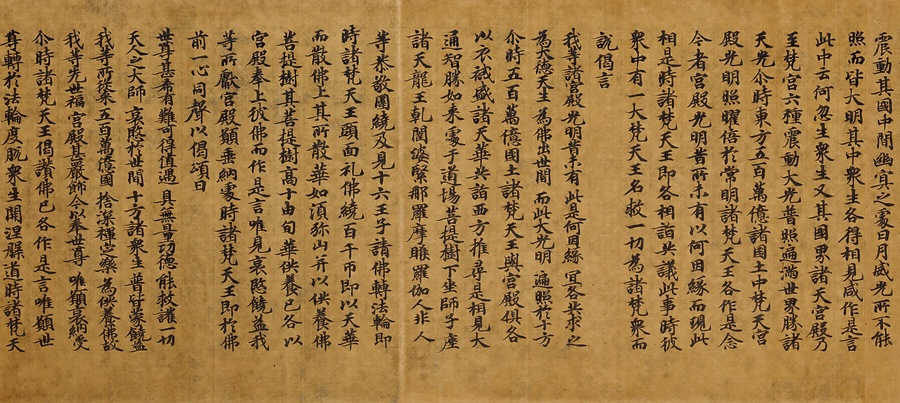 震動其國中間幽冥之處日月威光所不能
照而皆大明其中衆生各得相見咸作是言
此中云何忽生衆生又其國界諸天宮殿乃
至梵宮六種震動大光普照遍滿世界勝諸
天光尒時東方五百萬億諸國土中梵天宮
殿光明照曜倍於常明諸梵天王各作是念
今者宮殿光明昔所未有以何因緣而現此
相是時諸梵天王即各相詣共議此事時彼
衆中有一大梵天王名救一切為諸梵衆而
說偈言
我等諸宮殿 光明昔未有 此是何因緣 宜各共求之
為大德天生 為佛出世間 而此大光明 遍照於十方
尒時五百萬億國土諸梵天王與宮殿俱各
以衣祴盛諸天華共詣西方推尋是相見大
通智勝如來處于道場菩提樹下坐師子座
諸天龍王乹闥婆緊那羅摩睺羅伽人非人
等恭敬圍繞及見十六王子請佛轉法輪即
時諸梵天王頭面礼佛繞百千帀即以天華
而散佛上其所散華如湏弥山并以供養佛
菩提樹其菩提樹高十由旬華供養已各以
宮殿奉上彼佛而作是言唯見哀愍饒益我
等所獻宮殿願垂納處時諸梵天王即於佛
前一心同聲以偈頌曰
世尊甚希有 難可得值遇 具無量功德 能救護一切
天人之大師 哀愍於世間 十方諸衆生 普皆蒙饒益
我等所從來 五百萬億國 捨深禪定樂 為供養佛故
我等先世福 宮殿甚嚴飾 今以奉世尊 唯願哀納受
尒時諸梵天王偈讚佛已各作是言唯願世
尊轉於法輪度脫衆生開涅槃道時諸梵天